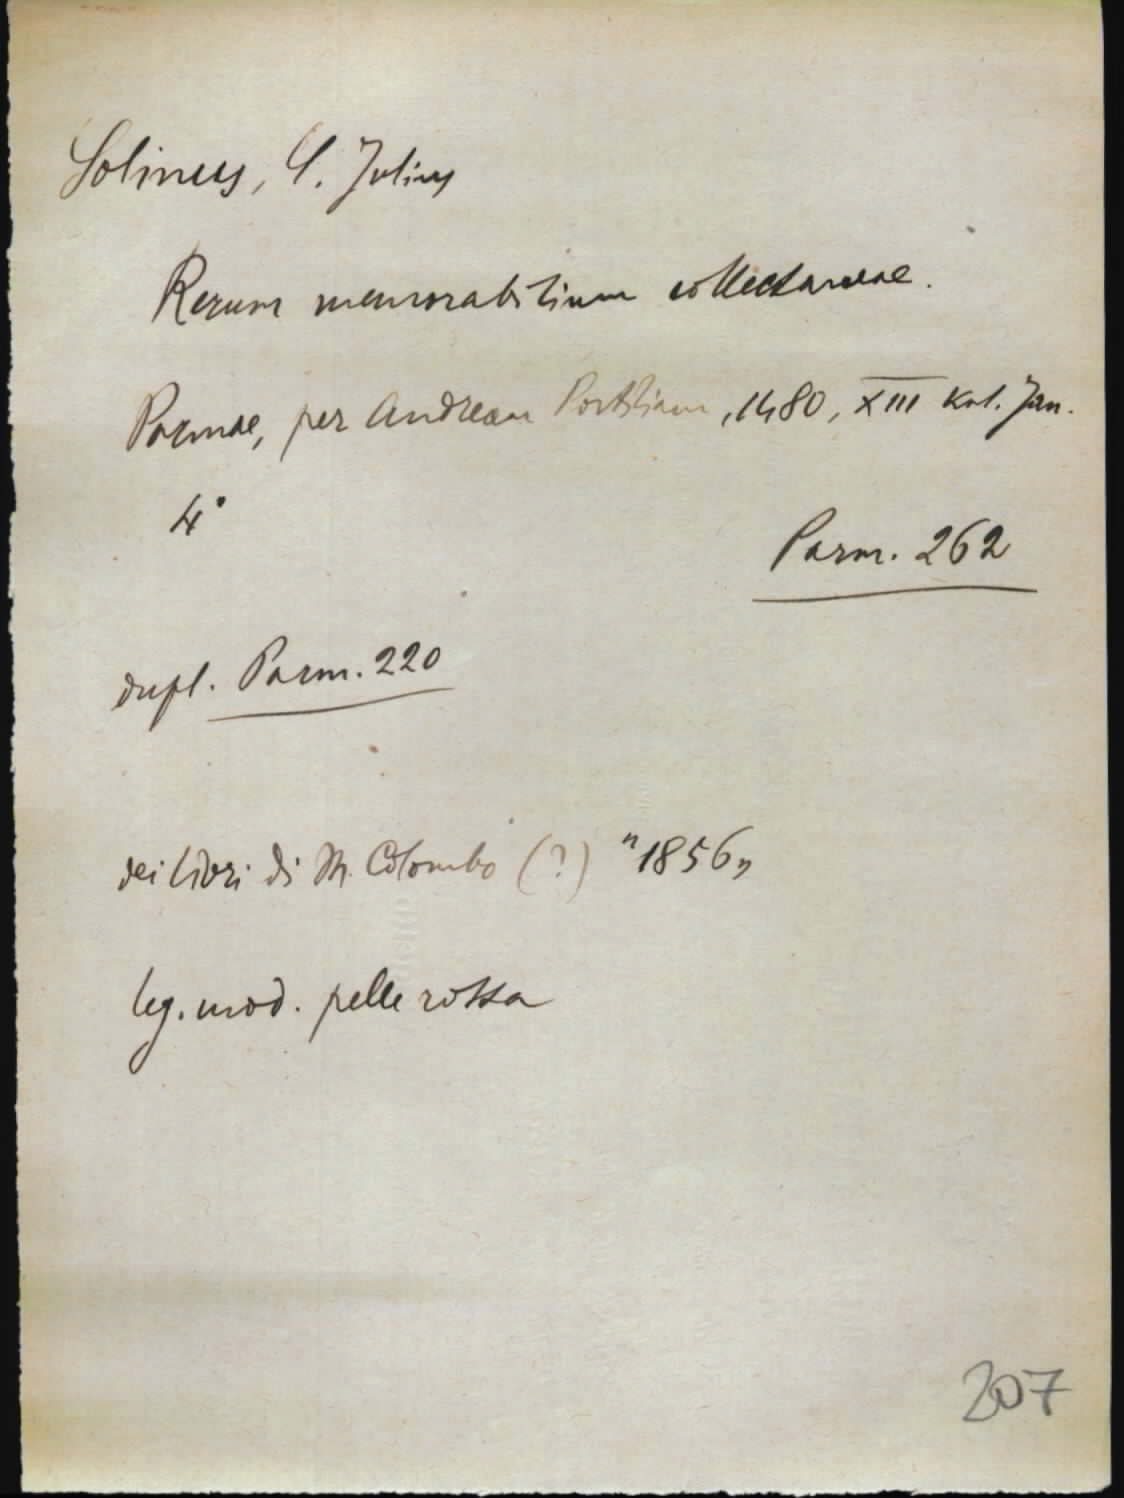 Solinus, C. Julius
Rerum memorabilium collectaneae.
Parmae, per Andream Portiliam, 1480, XIII Kal. Jan.
4°
Parm. 262
dupl. Parm. 220
dei libri di M. Colombo (?) "1856"
leg. mod. pelle rossa
207